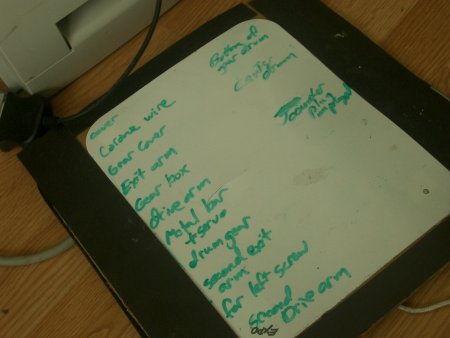 cover
Corona wire
Gear Cover
Exit arm
Gear box
drive arm
Metal bar
+ servo
drum gear
second exit
arm
far left screw
second
Drive arm
Bottom of
gear drum
Center
drum
EXPO